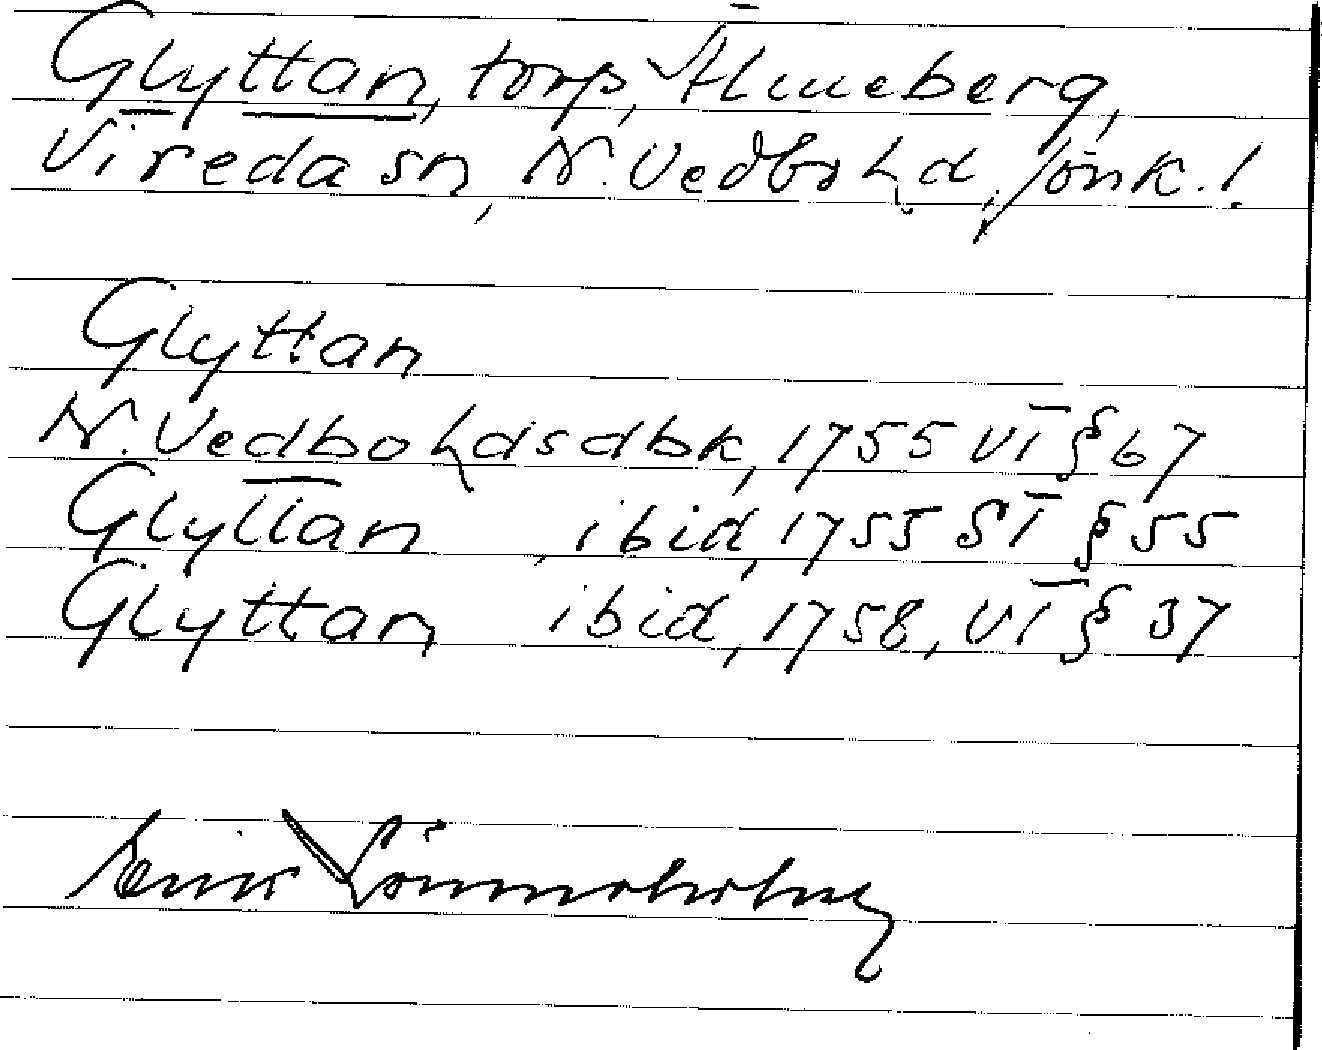 Glyttan, torp, Älmeberg,
Vireda sn, N. Vedbo hd, Jönk. l
Glyttan
N. Vedbo hds dbk, 1755 VT § 67
Glyttan ibid, 1755 ST § 55
Glyttan ibid, 1758, VT § 37
Erik